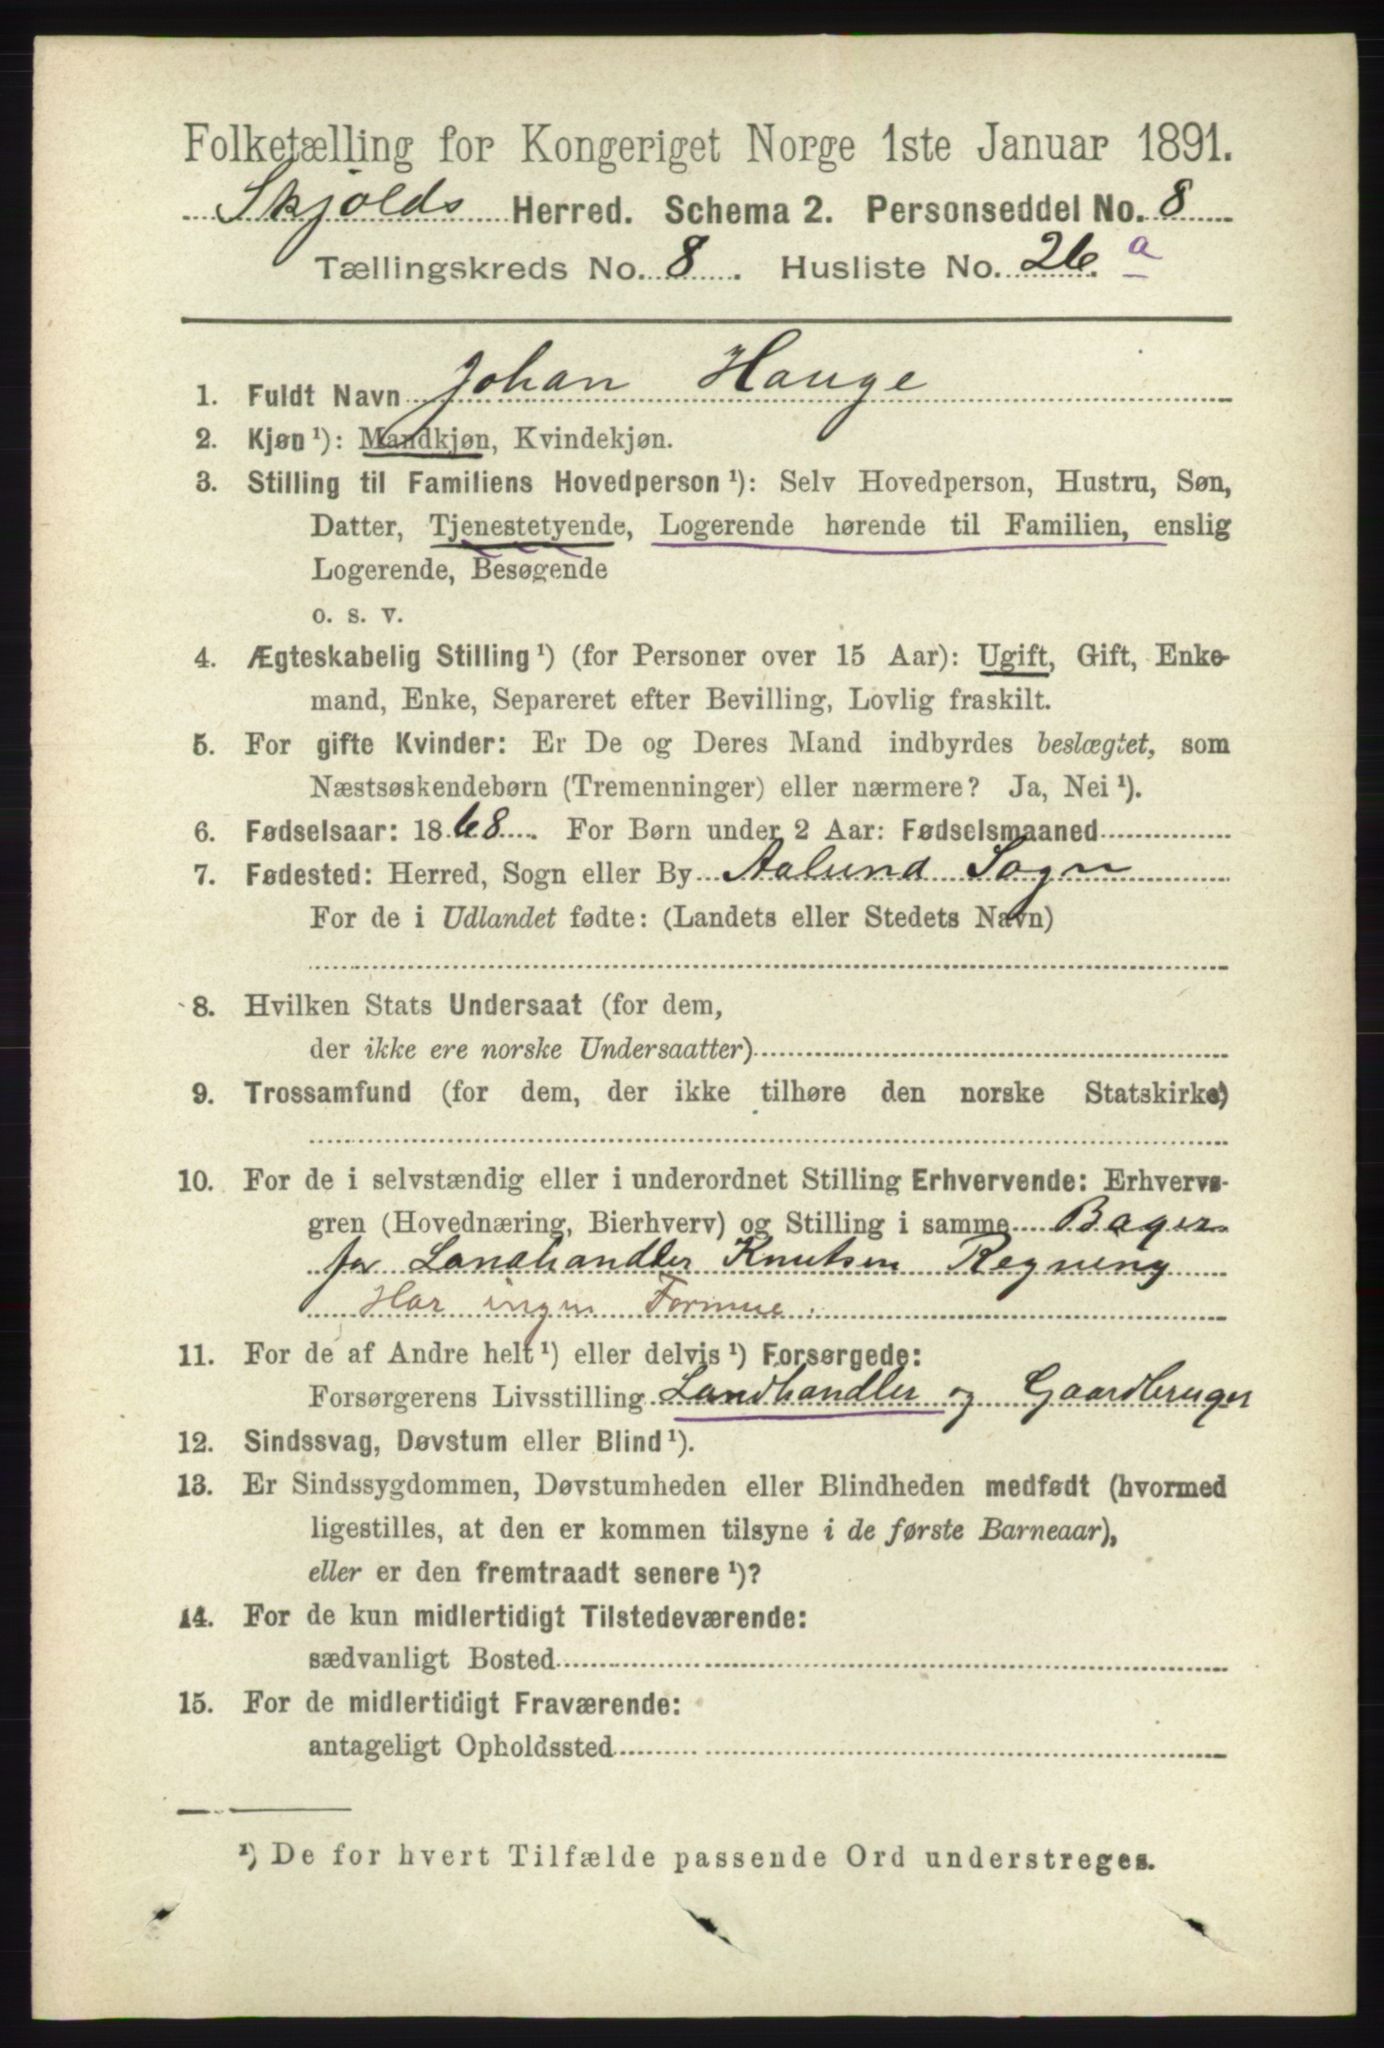 Folketælling for Kongeriget Norge 1ste Januar 1891.
Skjolds Herred. Schema 2. Personseddel No. 8
Tællingskreds No. 8. Husliste No. 26. a
1. Fuldt Navn Johan Hauge
2. Kjøn ¹): Mandkjøn, Kvindekjøn.
3. Stilling til Familiens Hovedperson ¹): Selv Hovedperson, Hustru, Søn,
Datter, Tjenestetyende, Logerende hørende til Familien, enslig
Logerende, Besøgende
o. s. v.
4. Ægteskabelig Stilling ¹) (for Personer over 15 Aar): Ugift, Gift, Enke-
mand, Enke, Separeret efter Bevilling, Lovlig fraskilt.
5. For gifte Kvinder: Er De og Deres Mand indbyrdes beslægtet, som
Næstsøskendebørn (Tremenninger) eller nærmere? Ja, Nei ¹).
6. Fødselsaar: 1868. For Børn under 2 Aar: Fødselsmaaned
7. Fødested: Herred, Sogn eller By Aalund Sogn
For de i Udlandet fødte: (Landets eller Stedets Navn)
8. Hvilken Stats Undersaat (for dem,
der ikke ere norske Undersaatter)
9. Trossamfund (for dem, der ikke tilhøre den norske Statskirke)
10. For de i selvstændig eller i underordnet Stilling Erhvervende: Erhvervs-
gren (Hovednæring, Bierhverv) og Stilling i samme Bager
for Landhandler Knutsen Regning
Har ingen Formue.
11. For de af Andre helt ¹) eller delvis ¹) Forsørgede:
Forsørgerens Livsstilling Landhandler og Gaardbruger
12. Sindssvag, Døvstum eller Blind ¹).
13. Er Sindssygdommen, Døvstumheden eller Blindheden medfødt (hvormed
ligestilles, at den er kommen tilsyne i de første Barneaar),
eller er den fremtraadt senere ¹)?
14. For de kun midlertidigt Tilstedeværende:
sædvanligt Bosted
15. For de midlertidigt Fraværende:
antageligt Opholdssted
¹) De for hvert Tilfælde passende Ord understreges.